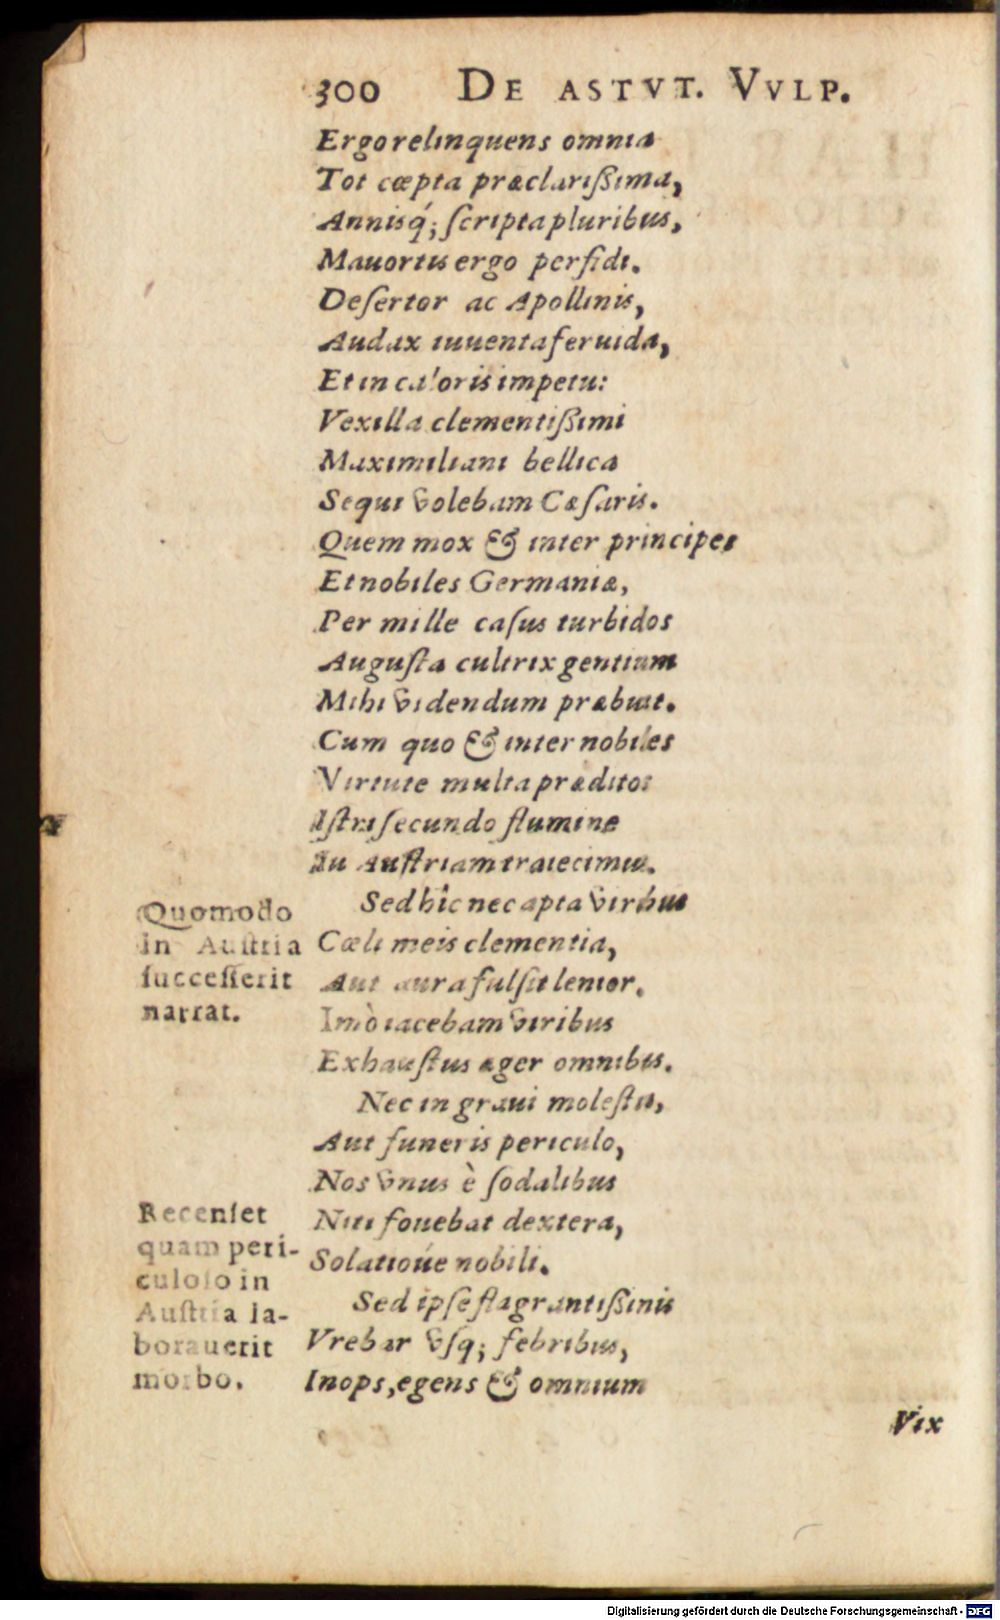 300 DE ASTVT. VVLP.
Ergo relinquens omnia
Tot cœpta præclarißima,
Annisq́; ſcripta pluribus,
Mauortis ergo perfidi.
Deſertor ac Apollinis,
Audax iuuenta feruida,
Et in caloris impetu:
Vexilla clementißimi
Maximiliani bellica
Sequi volebam Cæſaris.
Quem mox & inter principes
Et nobiles Germaniæ,
Per mille caſus turbidos
Auguſta cultrix gentium
Mihi videndum præbuit.
Cum quo & inter nobiles
Virtute multa præditos
Iſtri ſecundo flumine
In Auſtriam traiecimus.
Sed hîc nec apta viribus
Quomodo
in Auſtria
ſucceſſerit
narrat.
Cœli meis clementia,
Aut aura fulſit lenior.
Imò iacebam viribus
Exhauſtus æger omnibus.
Nec in graui moleſtia,
Aut funeris periculo,
Nos vnus è ſodalibus
Recenſet
quam peri-
culoſo in
Auſtria la-
borauerit
morbo.
Niti fouebat dextera,
Solatioúe nobili.
Sed ipſe flagrantißimis
Vrebar vſq; febribus,
Inops, egens & omnium
Vix
Digitalisierung gefördert durch die Deutsche Forschungsgemeinschaft - DFG